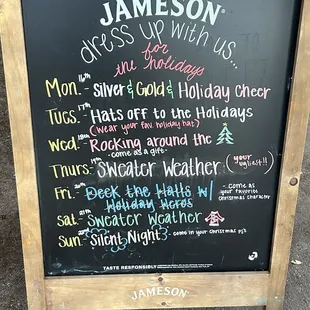 JAMESON
dress up with us...
for
the holidays
Mon. 16th - Silver & Gold & Holiday Cheer
Tues. 17th - Hats off to the Holidays
(wear your fav. holiday hat)
Wed. 18th - Rocking around the
- come as a gift -
Thurs. 19th - Sweater Weather (your ugliest!!)
Fri. Deck the Halls w/ - come as
Holiday Heros your favorite
christmas character
Sat. 21st Sweater Weather
Sun. Silent Night - come in your christmas pjs
TASTE RESPONSIBLY.
JAMESON